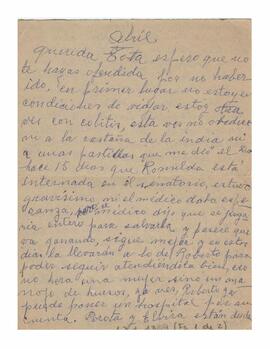 Abril
Querida Tota espero que no
te hayas ofendida por no haber
ido, en primer lugar no estoy en
condiciones de viajar estoy otra
vez con colitis, esta vez no obedece
ni a la castaña de la india ni
a unas pastillas que me dió el
hace 15 días que Romilda está
internada en el sanatorio, estuvo
gravísima, ni el médico daba espe-
ranza, pero el médico dijo que se
entero para salvarla y parece que
va ganando, sigue mejor y en estos
días la llevarán a lo de Roberto para
poder seguir atendiendola bien, eso
no era una mujer sino un ma
nojo de huesos, Roberto ya
puede poner un hospital por su
cuenta. Porota y Elvira están desde